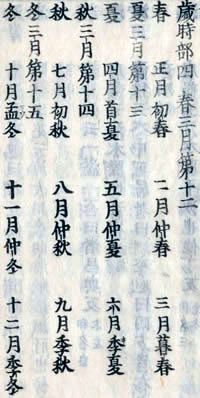 歲時部四 春三月第十二
春 正月初春 二月仲春 三月暮春
夏三月第十三
夏 四月首夏 五月仲夏 六月季夏
秋三月第十四
秋 七月初秋 八月仲秋 九月季秋
冬三月第十五
冬 十月孟冬 十一月仲冬 十二月季冬